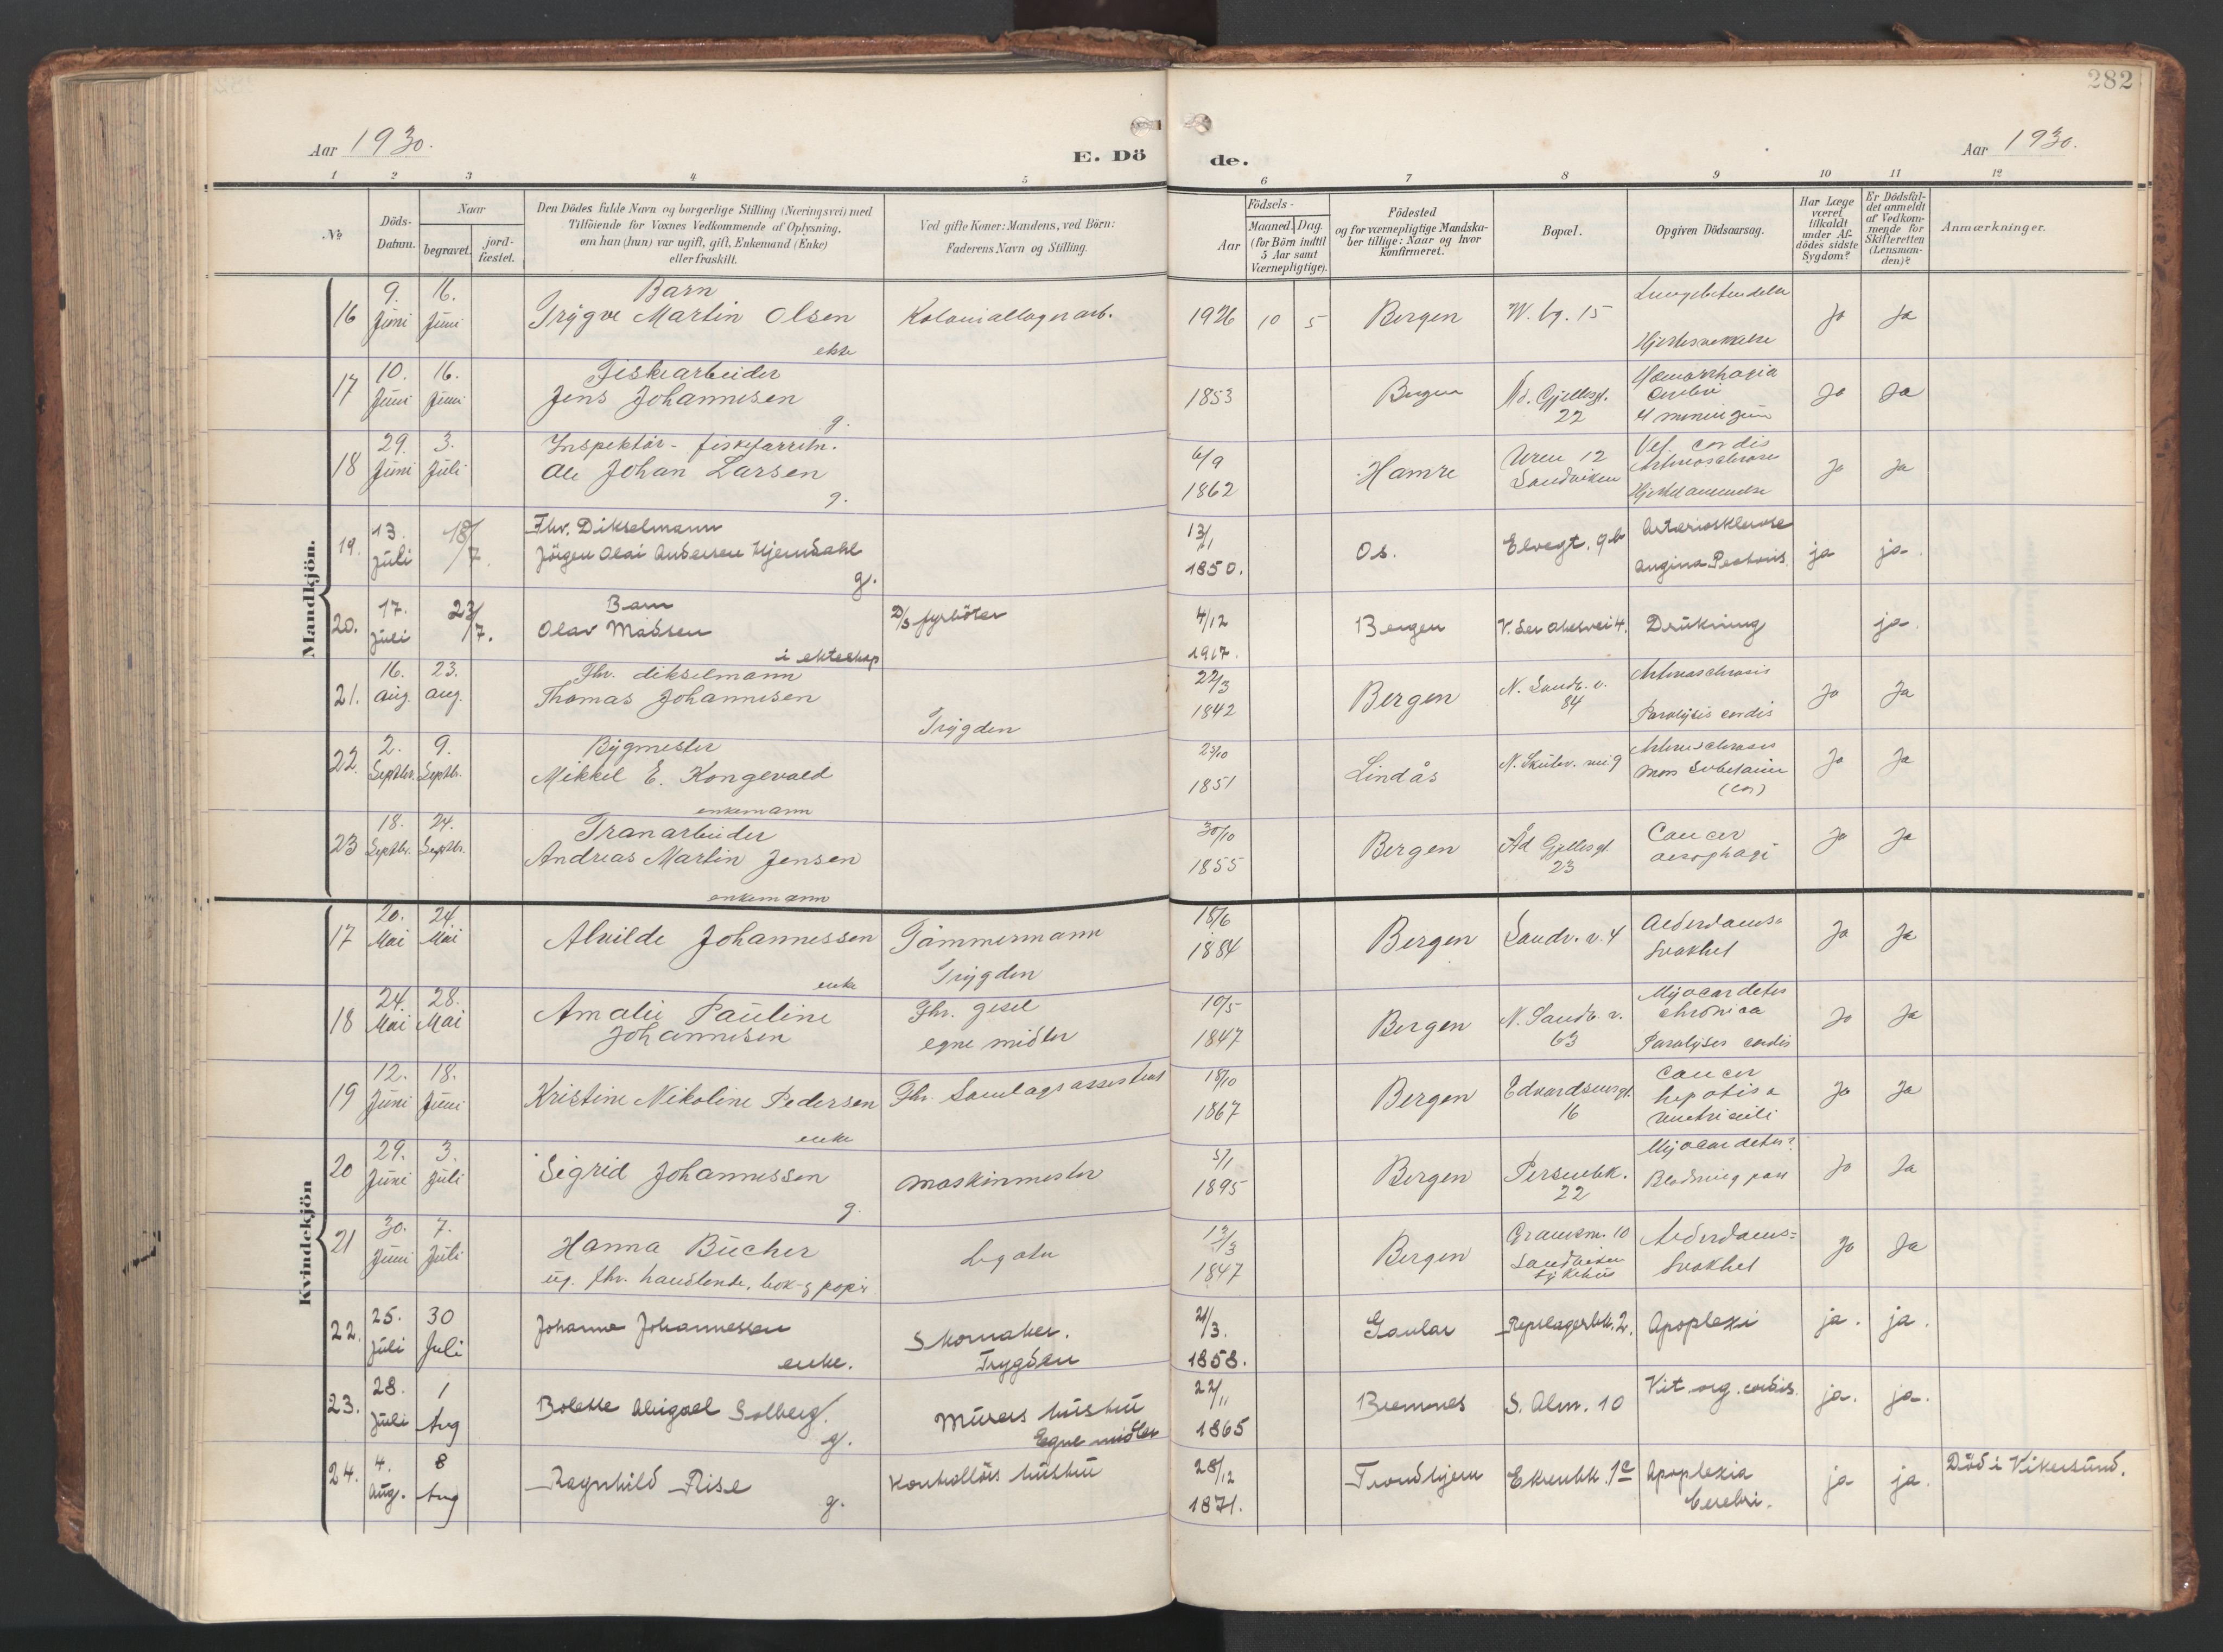 282
Aar 1930.
E. Döde.
Aar 1930.
1 2 3 4 5 6 7 8 9 10 11 12
№
Döds-Datum.
Naar
begravet.
jordfæstet.
Den Dödes fulde Navn og borgerlige Stilling (Næringsvei) med
Tilföiende for Voxnes Vedkommende af Oplysning,
om han (hun) var ugift, gift, Enkemand (Enke)
eller fraskilt.
Ved gifte Koner: Mandens, ved Börn:
Faderens Navn og Stilling.
Aar
Födsels-
Maaned. Dag.
(for Börn indtil
5 Aar samt
Værnepligtige).
Födested
og for værnepligtige Mandskaber tillige: Naar og hvor
Konfirmeret.
Bopæl.
Opgiven Dödsaarsag.
Har Læge
været
tilkaldt
under Afdödes sidste
Sygdom?
Er Dödsfaldet anmeldt
af Vedkommende for
Skifteretten
(Lensmanden)?
Anmærkninger.
Mandkjön.
16 9. Juni 16. Juni Barn
Trygve Martin Olsen
ekte
Koloniallagerarb. 1926 10 5 Bergen 15
Hjertesvekkelse Ja Ja
17 10. Juni 16. Juni Fiskearbeider
Jens Johannesen
g.
1853 Bergen Ad. Gjellesgt. 22
Ja Ja
18 29. Juni 3. Juli Inspektör - fiskeforretn.
Ole Johan Larsen
g.
6/9 1862 Hamre Uren 12 Sandviken
Vit. cordis
Arteriosclerose
Ja Ja
19. 13. Juli 18/7. Fhv. Dikselmann
Jörgen Olai Andersen Hjemdahl
g.
13/1 1850. Os. Elvegt. 9b
Arteriosklerose
Angina Pectoris. ja ja.
20. 17. Juli 23/7. Barn
Olav Madsen
i ekteskap
D/S fyrböter 4/12 1917. Bergen Drukning ja.
21. 16. aug. 23. aug. Fhv. dikselmann
Thomas Johannesen
Trygden
22/3 1842 Bergen N. Sandv. v. 84
Arteriosclerosis
Paralysis cordis Ja Ja
22. 2. Septbr. 9. Septbr. Bygmester
Mikkel E. Kongevold
enkemann
1851 Lindås
Arteriosclerosis
mors subetanin
(cor) Ja Ja
23 18. Septbr. 24. Septbr. Tranarbeider
Andreas Martin Jensen
enkemann
30/10 1855 Bergen Ad Gjellesgt. 23
Cancer
oesophagi Ja Ja
Kvindekjön
17 20. Mai 24. Mai Alvilde Johannessen
enke
Tömmermann
Trygden
18/6 1884 Bergen Sandv. v. 4
Alderdoms=
svakhet Ja Ja
18 24. Mai 28. Mai Amalie Pauline
Johannesen
Fhv. gesel
egne midler
10/5 1847 Bergen N. Sandv. v. 63
Myocardetis
chronica
Paralyses cordis Ja Ja
19 12. Juni 18. Juni Kristine Nikoline Pedersen
enke
Fhv. Samlagsassistent
18/10 1867 Bergen Edvardsensgt. 16
Cancer
hepatis &
ventriculi Ja Ja
20 29. Juni 3. Juli Sigrid Johannessen
g.
Maskinmester 5/1 1895 Bergen Persenbk. 22
Myocardetis?
Ja Ja
21 30. Juni 7. Juli Hanna Bücher
ug. fhv. handlende, bok- & papir
Legater
12/3 1847 Bergen 10
Sandviken
Sykehus
Alderdoms=
svakhet Ja Ja
22. 25. Juli 30 Juli Johanna Johannessen
enke.
Skomaker.
Trygden
21/3. 1858. Gaular Repslagerbk. 2. Apoplexi ja. ja.
23. 28. Juli 1 Aug Bolette Abigael Solberg.
g.
Murers hustru
Egne midler
22/11 1865 Bremnes S. Alm. 10 Vit. org. cordis. ja. ja.
24. 4. Aug. 8 Aug Ragnhild Riise
g.
Kontrollörs hustru
28/12 1871. Trondhjem Ekrenbk. 1c Apoplexia
Cerebri. ja ja. Död i Vikersund.